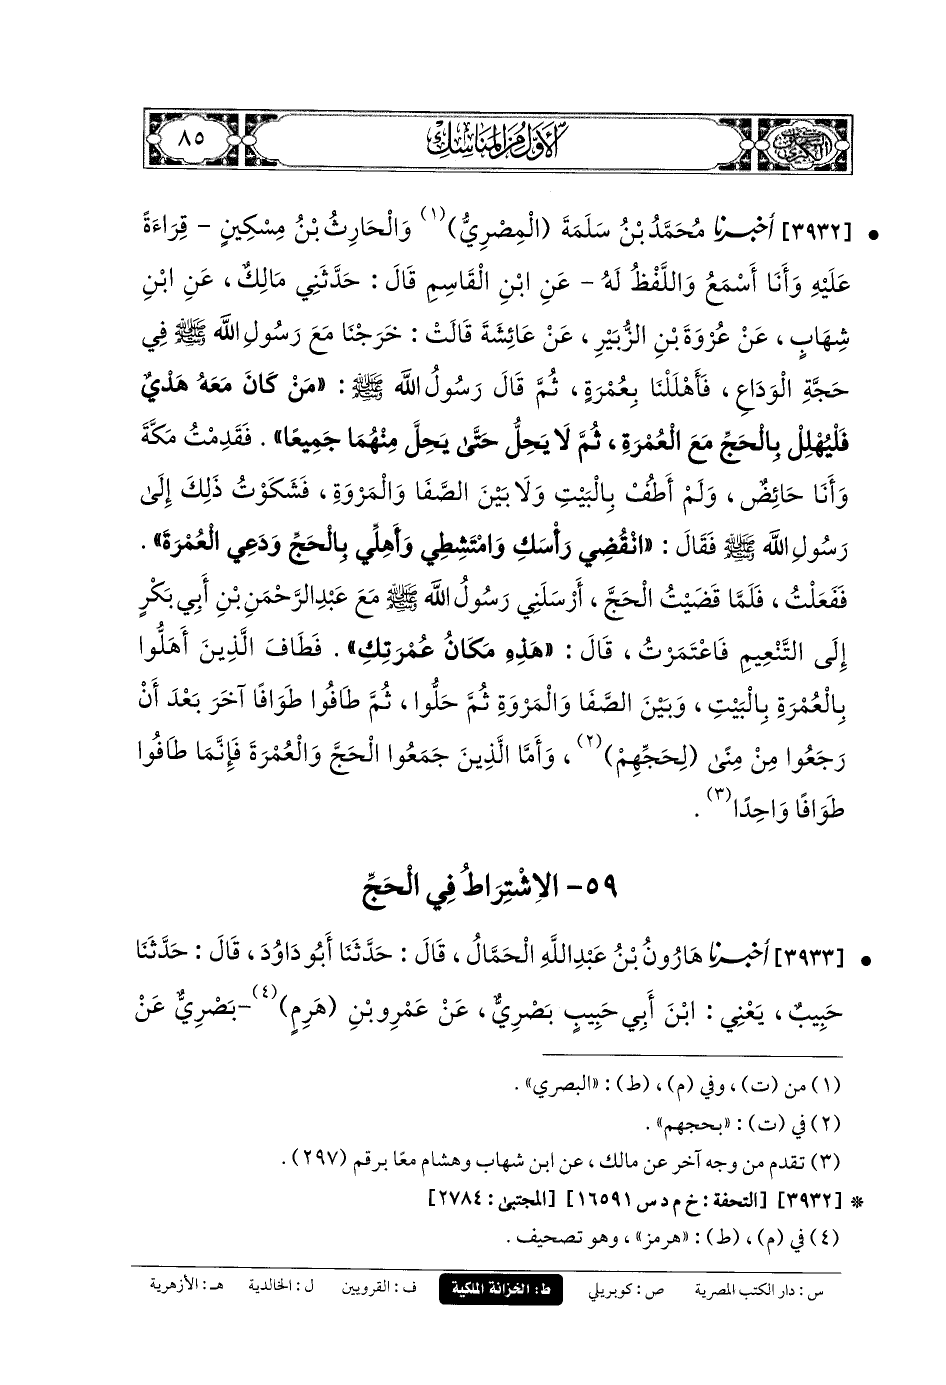 الأول من المناسك
٨٥
• [٣٩٣٢] أخبرنا مُحَمَّدُ بْنُ سَلَمَةَ (الْمِصْرِيُّ)(١) وَالْحَارِثُ بْنُ مِسْكِينٍ - قِرَاءَةً
عَلَيْهِ وَأَنَا أَسْمَعُ وَاللَّفْظُ لَهُ - عَنِ ابْنِ الْقَاسِمِ قَالَ : حَدَّثَنِي مَالِكٌ ، عَنِ ابْنِ
شِهَابٍ ، عَنْ عُرْوَةَ بْنِ الزُّبَيْرِ ، عَنْ عَائِشَةَ قَالَتْ : خَرَجْنَا مَعَ رَسُولِ اللَّه ﷺ فِي
حَجَّةِ الْوَدَاعِ ، فَأَهْلَلْنَا بِعُمْرَةٍ ، ثُمَّ قَالَ رَسُولُ اللَّه ﷺ : «مَنْ كَانَ مَعَهُ هَدْيٌ
فَلْيُهْلِلْ بِالْحَجِّ مَعَ الْعُمْرَةِ ، ثُمَّ لَا يَحِلُّ حَتَّىٰ يَحِلَّ مِنْهُمَا جَمِيعًا» . فَقَدِمْتُ مَكَّةَ
وَأَنَا حَائِضٌ ، وَلَمْ أَطُفْ بِالْبَيْتِ وَلَا بَيْنَ الصَّفَا وَالْمَرْوَةِ ، فَشَكَوْتُ ذَلِكَ إِلَىٰ
رَسُولِ اللَّه ﷺ فَقَالَ : «انْقُضِي رَأْسَكِ وَامْتَشِطِي وَأَهِلِّي بِالْحَجِّ وَدَعِي الْعُمْرَةَ» .
فَفَعَلْتُ ، فَلَمَّا قَضَيْتُ الْحَجَّ ، أَرْسَلَنِي رَسُولُ اللَّه ﷺ مَعَ عَبْدِالرَّحْمَنِ بْنِ أَبِي بَكْرٍ
إِلَى التَّنْعِيمِ فَاعْتَمَرْتُ ، قَالَ : «هَذِهِ مَكَانُ عُمْرَتِكِ» . فَطَافَ الَّذِينَ أَهَلُّوا
بِالْعُمْرَةِ بِالْبَيْتِ ، وَبَيْنَ الصَّفَا وَالْمَرْوَةِ ثُمَّ حَلُّوا ، ثُمَّ طَافُوا طَوَافًا آخَرَ بَعْدَ أَنْ
رَجَعُوا مِنْ مِنًىٰ (لِحَجِّهِمْ)(٢) ، وَأَمَّا الَّذِينَ جَمَعُوا الْحَجَّ وَالْعُمْرَةَ فَإِنَّمَا طَافُوا
طَوَافًا وَاحِدًا(٣) .
٥٩- الِاشْتِرَاطُ فِي الْحَجِّ
• [٣٩٣٣] أخبرنا هَارُونُ بْنُ عَبْدِاللَّهِ الْحَمَّالُ ، قَالَ : حَدَّثَنَا أَبُو دَاوُدَ ، قَالَ : حَدَّثَنَا
حَبِيبٌ ، يَعْنِي : ابْنَ أَبِي حَبِيبٍ بَصْرِيٌّ ، عَنْ عَمْرِو بْنِ (هَرِمٍ)(٤)-بَصْرِيٌّ عَنْ
(١) من (ت) ، وفي (م) ، (ط) : «البصري» .
(٢) في (ت) : «بحجهم» .
(٣) تقدم من وجه آخر عن مالك ، عن ابن شهاب وهشام معًا برقم (٢٩٧) .
* [٣٩٣٢] [التحفة : خ م د س ١٦٥٩١] [المجتبىٰ : ٢٧٨٤]
(٤) في (م) ، (ط) : «هرمز» ، وهو تصحيف .
س : دار الكتب المصرية ص : كوبريلي ط : الخزانة الملكية ف : القرويين ل : الخالدية هـ : الأزهرية